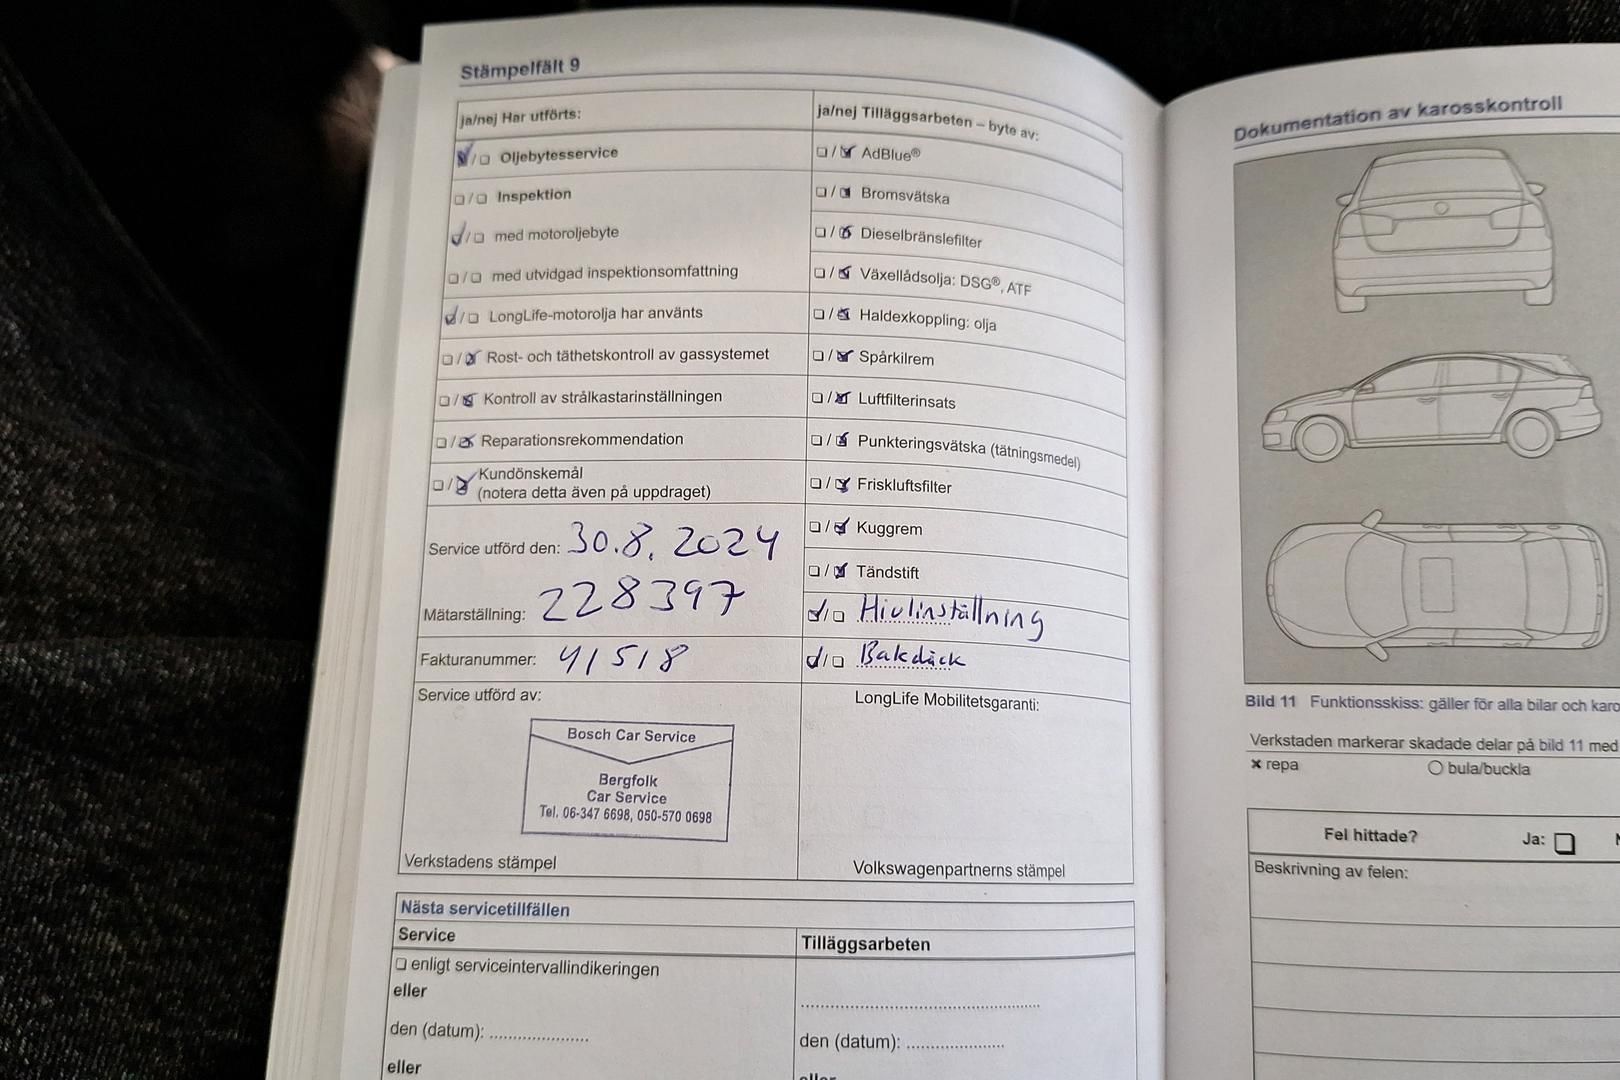 Stämpelfält 9
ja/nej Har utförts:
Oljebytesservice
Inspektion
med motoroljebyte
med utvidgad inspektionsomfattning
LongLife-motorolja har använts
Rost- och täthetskontroll av gassystemet
Kontroll av strålkastarinställningen
Reparationsrekommendation
Kundönskemål
(notera detta även på uppdraget)
Service utförd den: 30.8.2024
Mätarställning: 228397
Fakturanummer: 41518
Service utförd av:
Bosch Car Service
Bergfolk
Car Service
Tel. 06-347 6698, 050-570 0698
Verkstadens stämpel
ja/nej Tilläggsarbeten – byte av:
AdBlue®
Bromsvätska
Dieselbränslefilter
Växellådsolja: DSG®, ATF
Haldexkoppling: olja
Spårkilrem
Luftfilterinsats
Punkteringsvätska (tätningsmedel)
Friskluftsfilter
Kuggrem
Tändstift
Hiulinställning
Bakdäck
LongLife Mobilitetsgaranti:
Volkswagenpartnerns stämpel
Nästa servicetillfällen
Service
enligt serviceintervallindikeringen
eller
den (datum): ......................
eller
Tilläggsarbeten
den (datum): ......................
eller
Dokumentation av karosskontroll
Bild 11 Funktionsskiss: gäller för alla bilar och karo
Verkstaden markerar skadade delar på bild 11 med
× repa
bula/buckla
Fel hittade? Ja:
Beskrivning av felen: